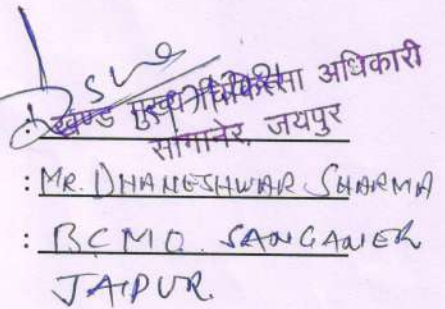 खण्ड मुख्य चिकित्सा अधिकारी
सांगानेर, जयपुर
: MR. DHANESHWAR SHARMA
: BCMO. SANGANER
JAIPUR.